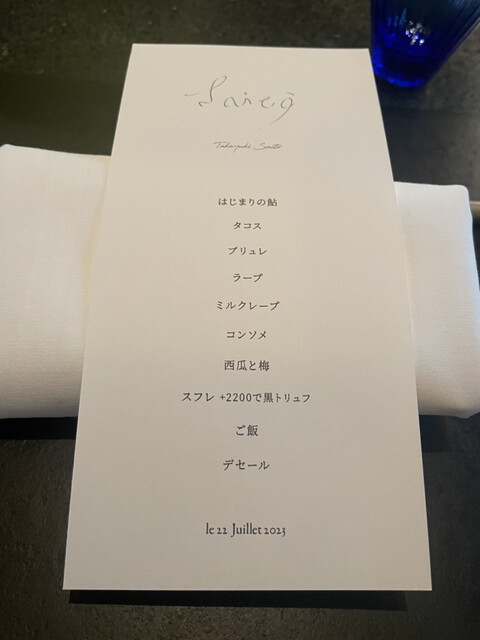 Takayuki Saito
はじまりの鮎
タコス
ブリュレ
ラープ
ミルクレープ
コンソメ
西瓜と梅
スフレ +2200で黒トリュフ
ご飯
デセール
le 22 Juillet 2023